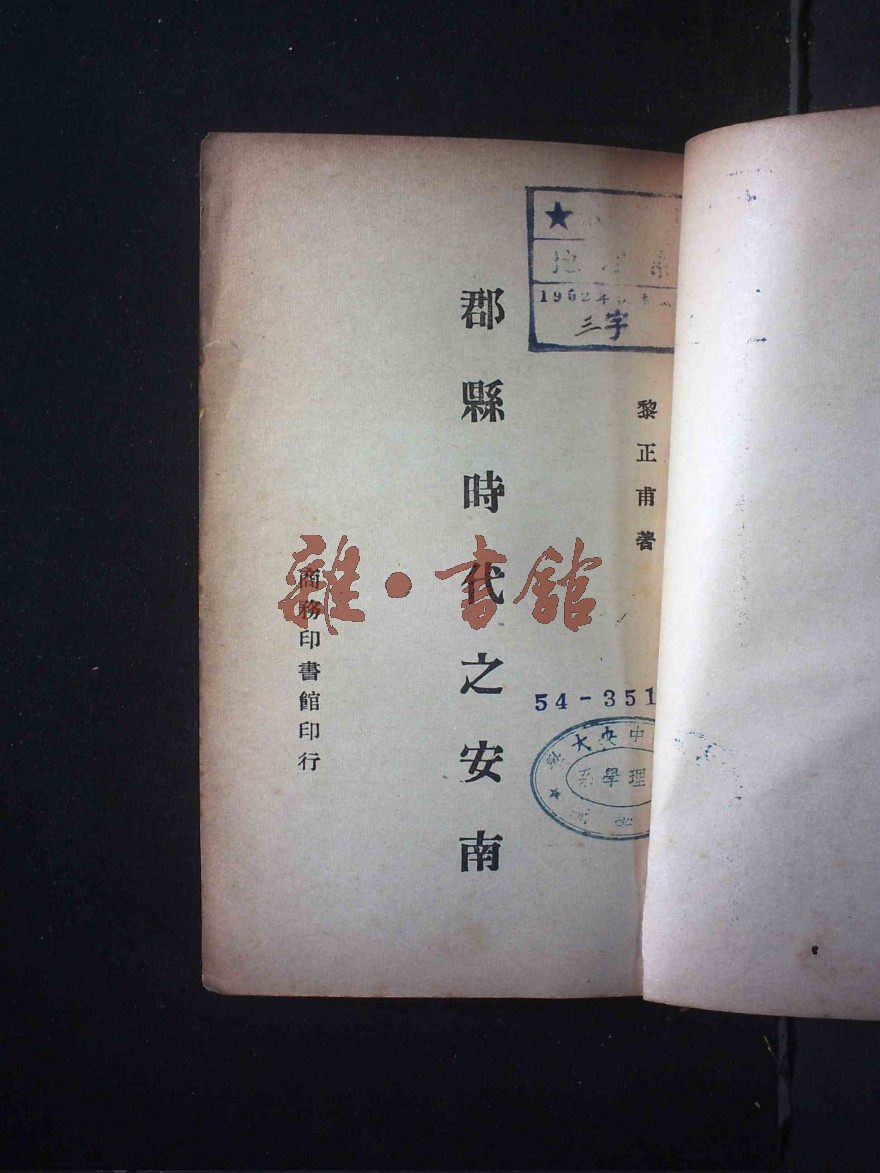 黎正甫著
郡縣時代之安南
商務印書館印行
雜·書館
★
地
1962年
三字
54-351
中央大
理學系